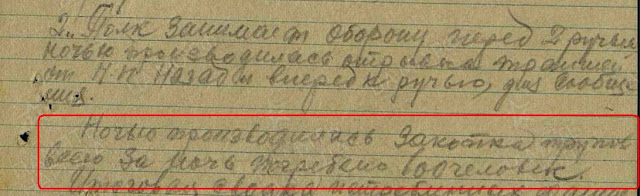 2. Полк занимает оборону перед 2 ручьем
ночью производилась отрывка траншеи
от Н.П. Назад и вперед к ручью, для сообще
ния.
Ночью производилась закопка трупов
всего за ночь погребено 100 человек.
Итоговая сводка погребенных